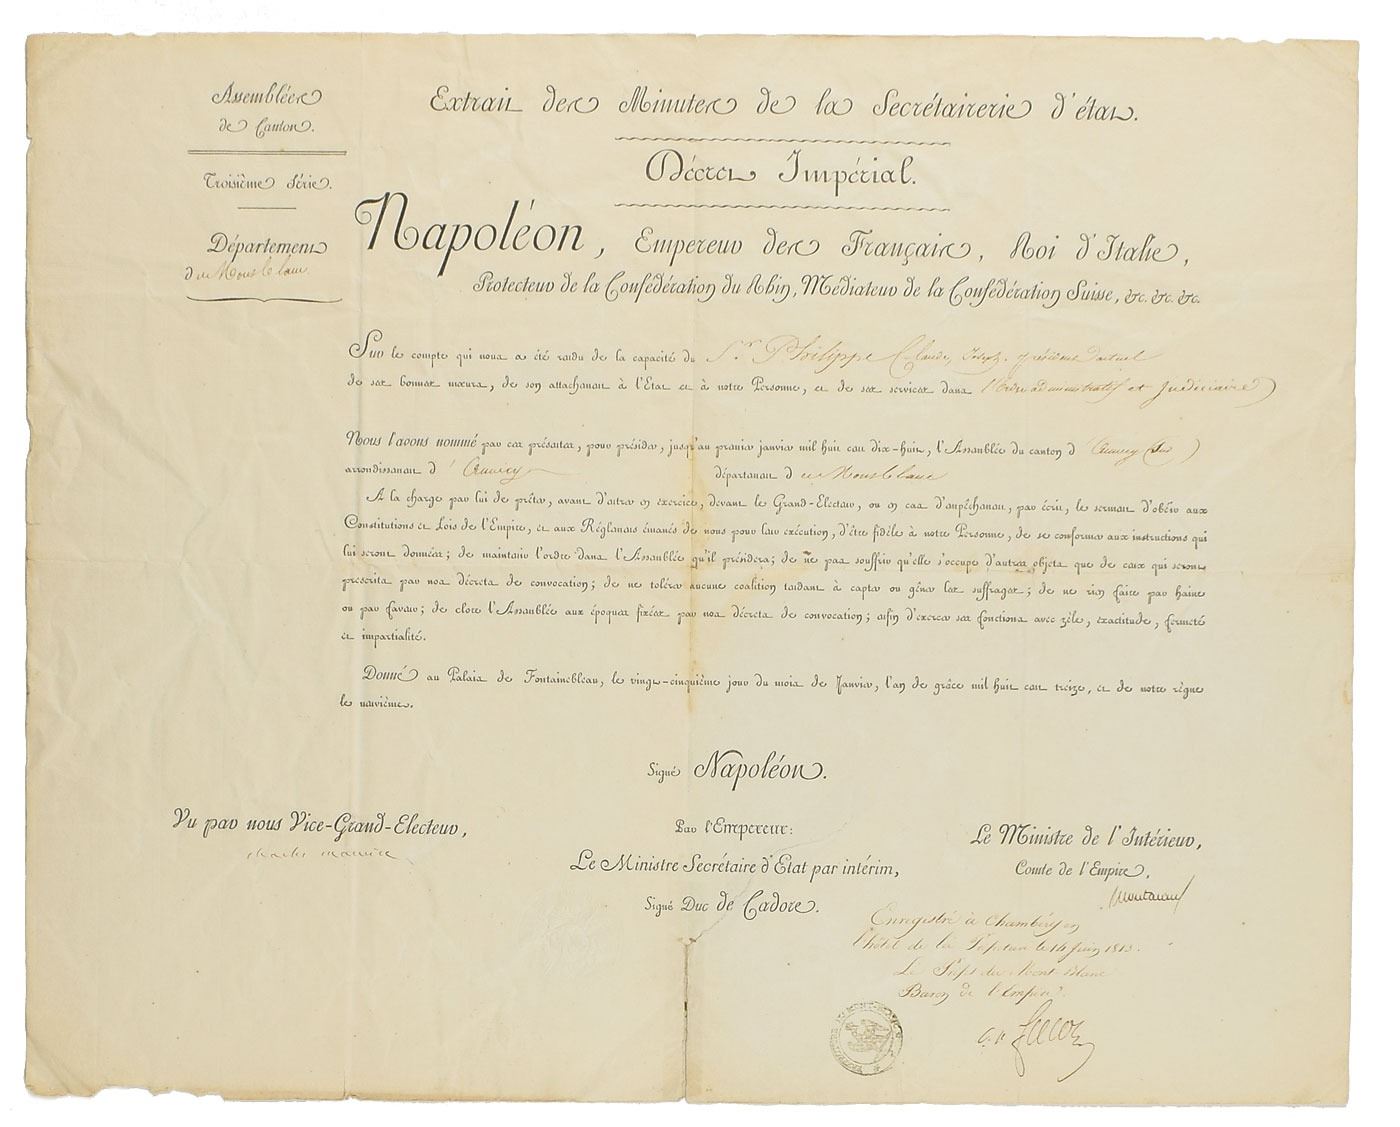 Assemblées
de Canton.
Troisième Série.
Département
du Montblanc
Extrait des Minutes de la Secrétairerie d'état.
Décret Impérial.
Napoléon, Empereur des Français, Roi d'Italie,
Protecteur de la Confédération du Rhin, Médiateur de la Confédération Suisse, &c. &c. &c.
Sur le compte qui nous a été rendu de la capacité du Sr. Philippe Claude, Joseph. président actuel
de ses bonnes mœurs, de son attachement à l'Etat et à notre Personne, et de ses services dans l'Ordre administratif et judiciaire
Nous l'avons nommé par ces présentes, pour présider, jusqu'au premier janvier mil huit cent dix-huit, l'Assemblée du canton d'Annecy (Sud)
arrondissement d'Annecy département du Montblanc
A la charge par lui de prêter, avant d'entrer en exercice, devant le Grand-Electeur, ou en cas d'empêchement, par écrit, le serment d'obéir aux
Constitutions et Lois de l'Empire, et aux Réglemens émanés de nous pour leur exécution, d'être fidèle à notre Personne, de se conformer aux instructions qui
lui seront données; de maintenir l'ordre dans l'Assemblée qu'il présidera; de ne pas souffrir qu'elle s'occupe d'autres objets que de ceux qui seront
prescrits par nos décrets de convocation; de ne tolérer aucune coalition tendant à capter ou gêner les suffrages; de ne rien faire par haine
ou par faveur; de clore l'Assemblée aux époques fixées par nos décrets de convocation; afin d'exercer ses fonctions avec zèle, exactitude, fermeté
et impartialité.
Donné au Palais de Fontainebleau, le vingt-cinquième jour du mois de Janvier, l'an de grâce mil huit cent treize, et de notre règne
le neuvième.
Signé Napoléon.
Vu par nous Vice-Grand-Electeur,
charles maurice
Par l'Empereur:
Le Ministre Secrétaire d'Etat par intérim,
Signé Duc de Cadore.
Le Ministre de l'Intérieur,
Comte de l'Empire,
Montalivet
Enregistré à Chambéry en
l'hôtel de la Préfecture le 14 Juin 1813.
Le Préfet du Mont-Blanc
Baron de l'Empire